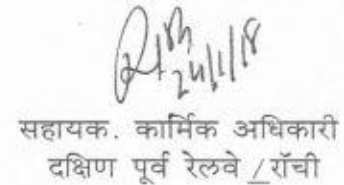 24/1/18
सहायक. कार्मिक अधिकारी
दक्षिण पूर्व रेलवे /राँची